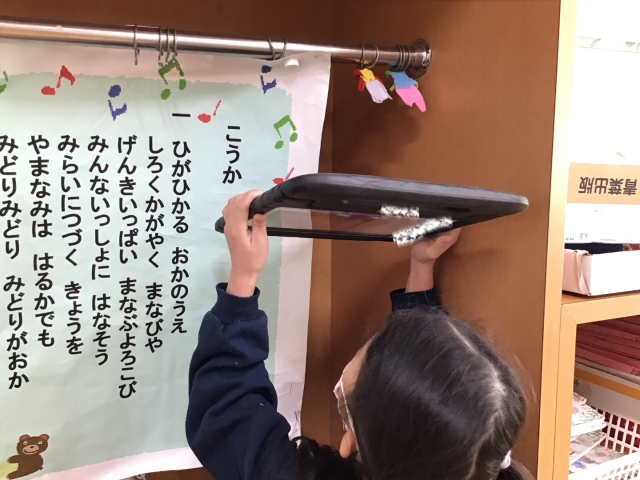 こうか
一 ひがひかる おかのうえ
しろくかがやく まなびや
げんきいっぱい まなぶよろこび
みんないっしょに はなそう
みらいにつづく きょうを
やまなみは はるかでも
みどりみどり みどりがおか
青葉出版